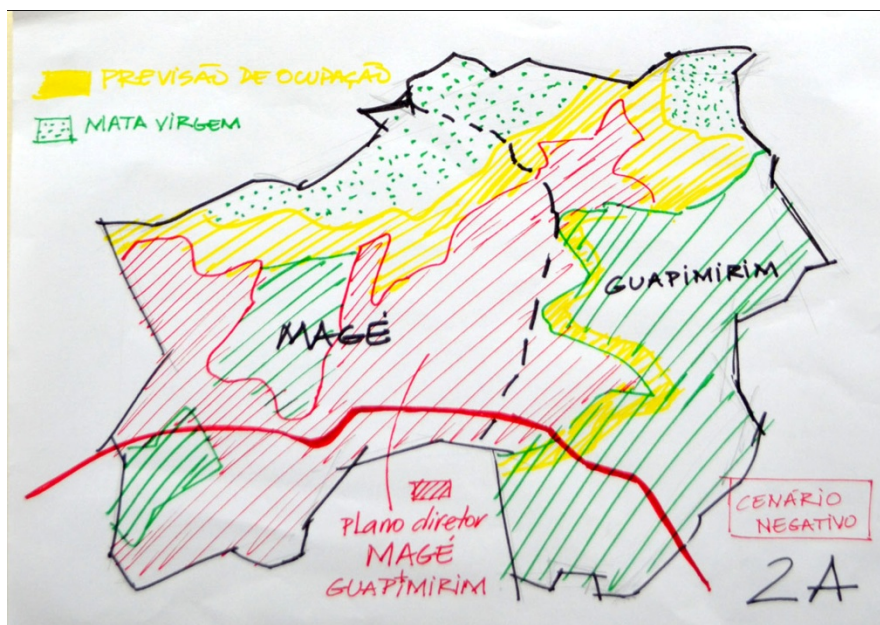 PREVISÃO DE OCUPAÇÃO
MATA VIRGEM
GUAPIMIRIM
MAGÉ
Plano diretor
MAGÉ
+
GUAPIMIRIM
CENÁRIO
NEGATIVO
2A